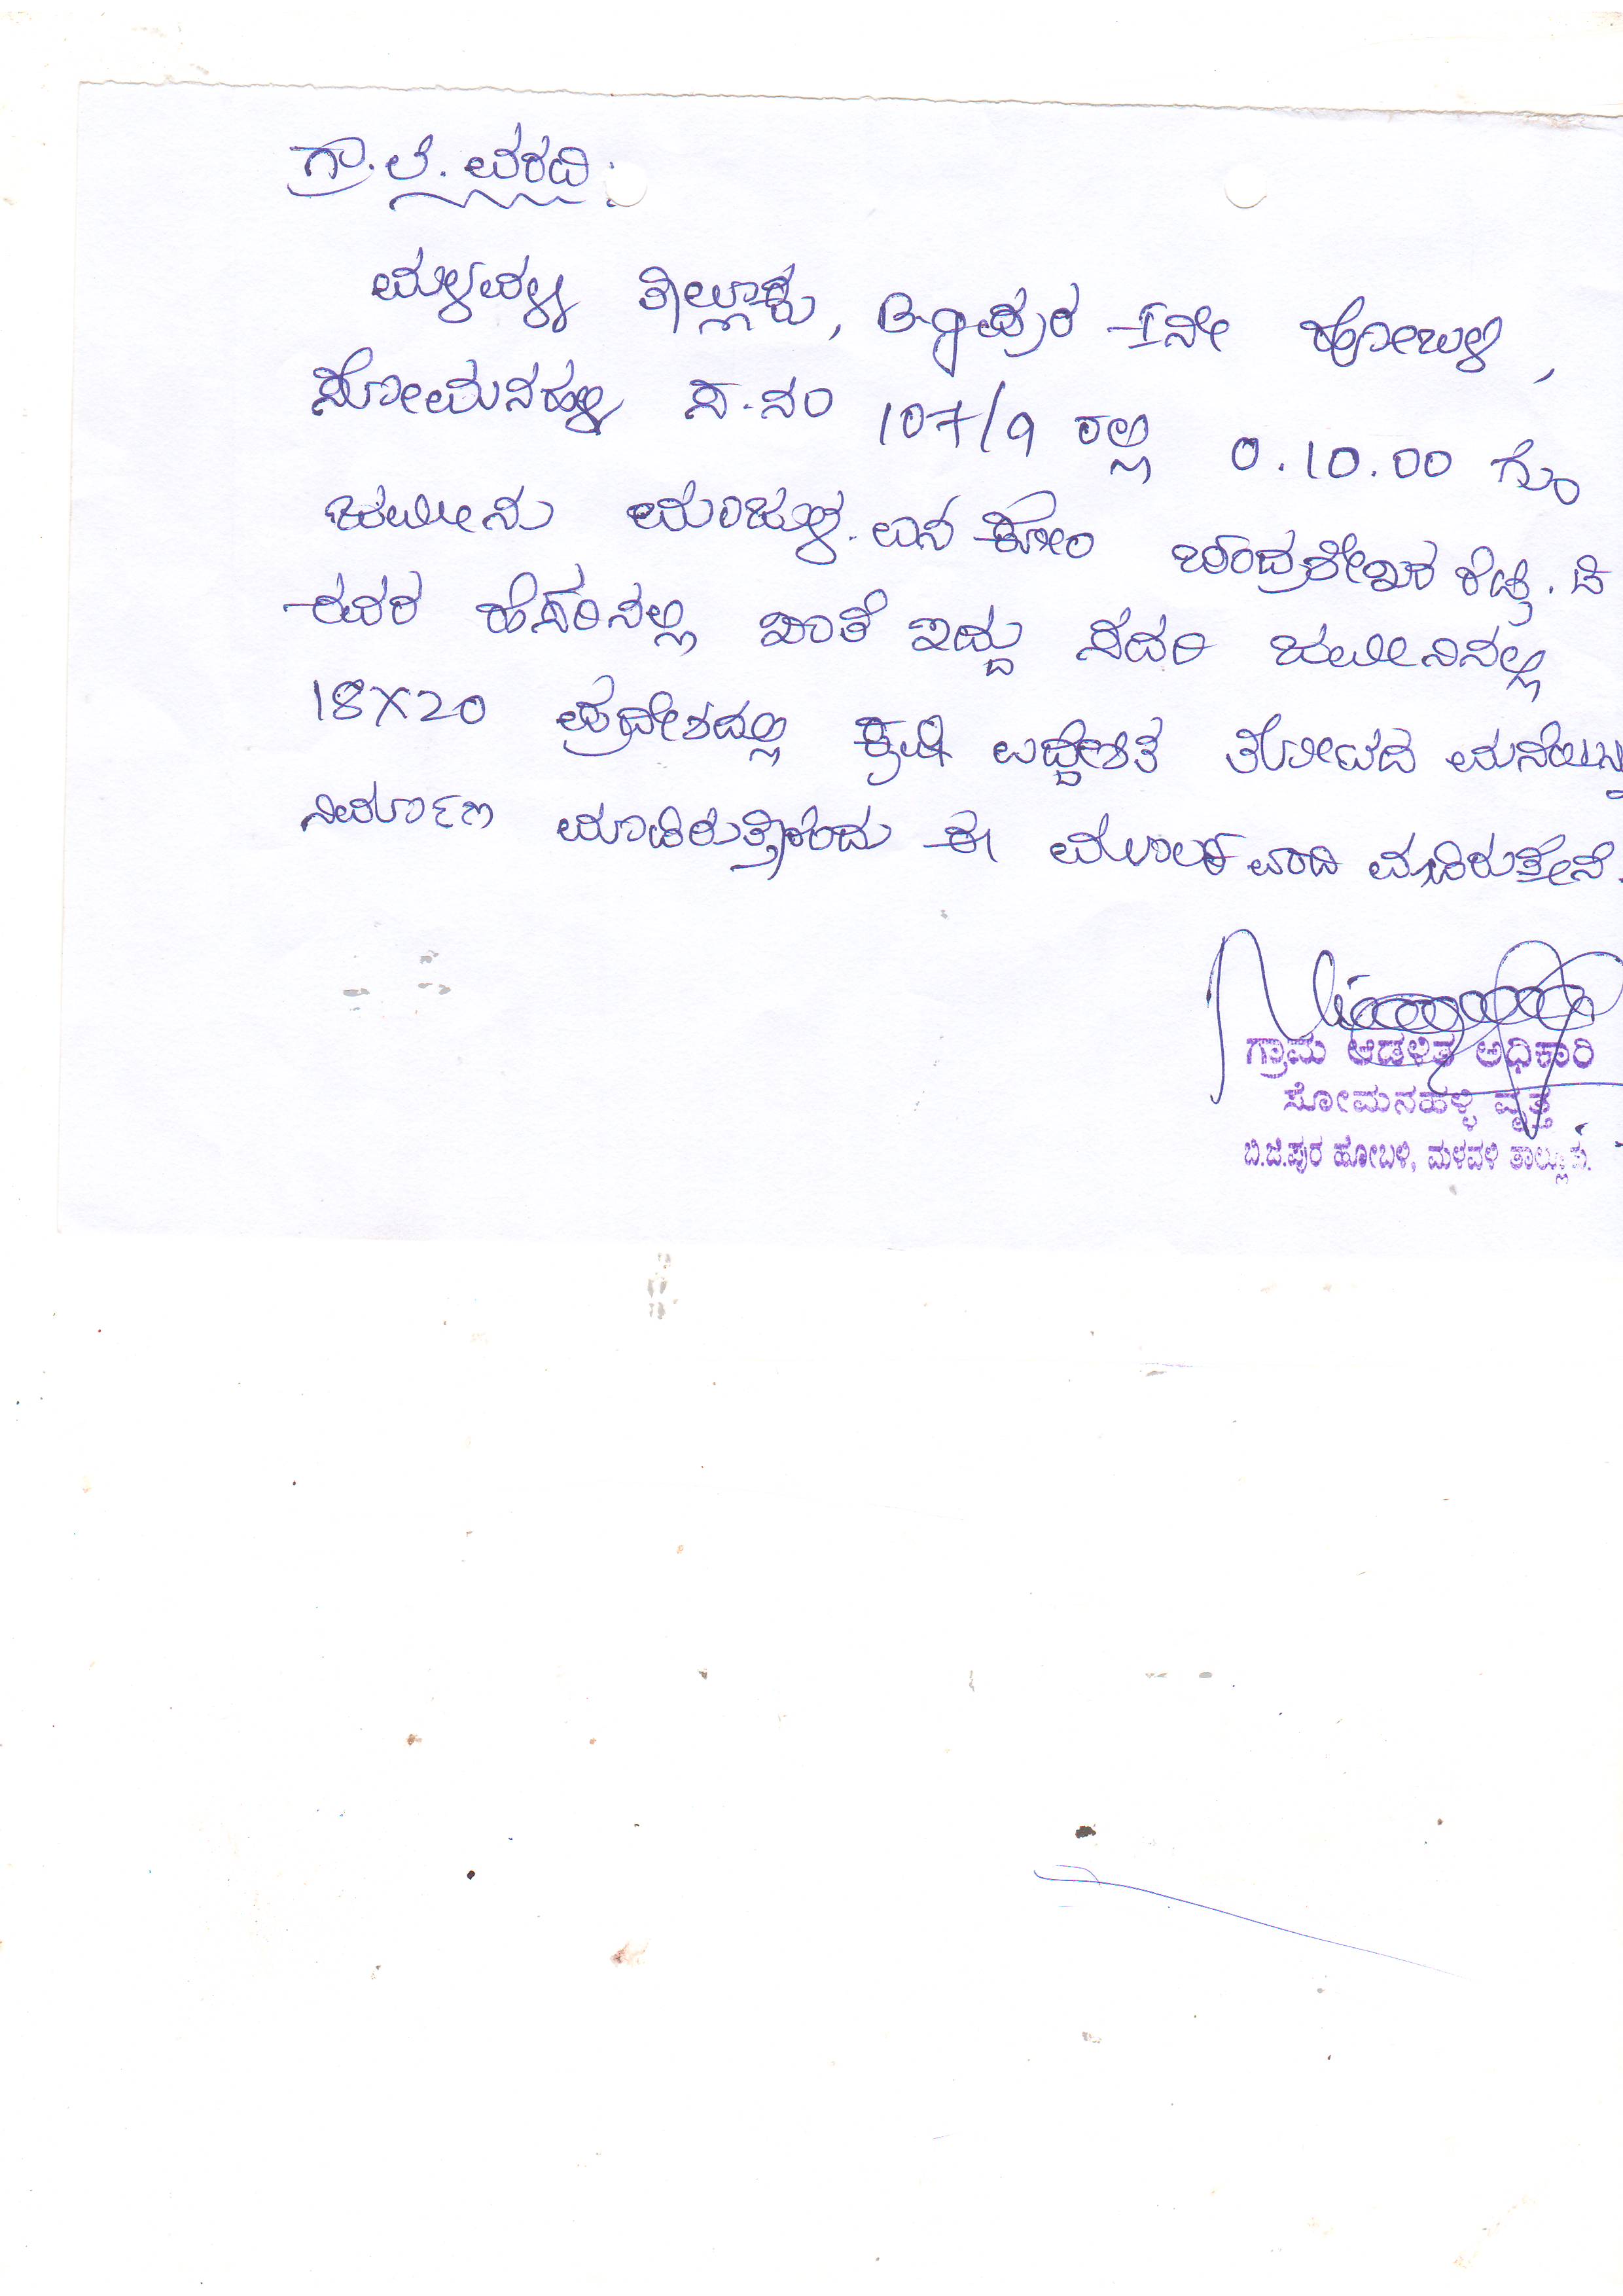 ಗ್ರಾ.ಲೆ. ವರದಿ:
ಮಳವಳ್ಳಿ ತಾಲ್ಲೂಕು, B.gಪುರ -Iನೇ ಹೋಬಳಿ,
ಸೋಮನಹಳ್ಳಿ ಸ.ನಂ 107/9 ರಲ್ಲಿ 0.10.00 ಗುಂ
ಜಮೀನು ಮಂಜುಳ.ಎನ್ ಕೋಂ ಚಂದ್ರಶೇಖರ ಶೆಟ್ಟಿ. ಡಿ
ರವರ ಹೆಸರಿನಲ್ಲಿ ಖಾತೆ ಇದ್ದು ಸದರಿ ಜಮೀನಿನಲ್ಲಿ
18X20 ಪ್ರದೇಶದಲ್ಲಿ ಕೃಷಿ ಉದ್ದೇಶಿತ ತೋಟದ ಮನೆಯನ್ನು
ನಿರ್ಮಾಣ ಮಾಡಿರುತ್ತಾರೆಂದು ಈ ಮೂಲಕ ವರದಿ ಮಾಡಿರುತ್ತೇನೆ.
ಗ್ರಾಮ ಆಡಳಿತ ಅಧಿಕಾರಿ
ಸೋಮನಹಳ್ಳಿ ವೃತ್ತ
ಬಿ.ಜಿ.ಪುರ ಹೋಬಳಿ, ಮಳವಳ್ಳಿ ತಾಲ್ಲೂಕು.